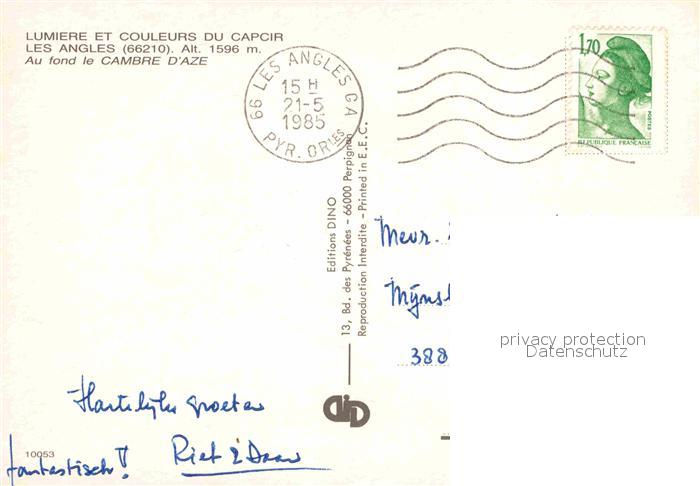 LUMIERE ET COULEURS DU CAPCIR
LES ANGLES (66210). Alt. 1596 m.
Au fond le CAMBRE D'AZE
66 LES ANGLES CA
15 H
21-5
1985
PYR. ORLES
1,70
POSTES
REPUBLIQUE FRANÇAISE
Editions DINO
13, Bd. des Pyrénées - 66000 Perpignan
Reproduction Interdite - Printed in E.E.C.
Mevr.
388
privacy protection
Datenschutz
Hartelijke groeten
Riet & Daan
fantastisch!
10053